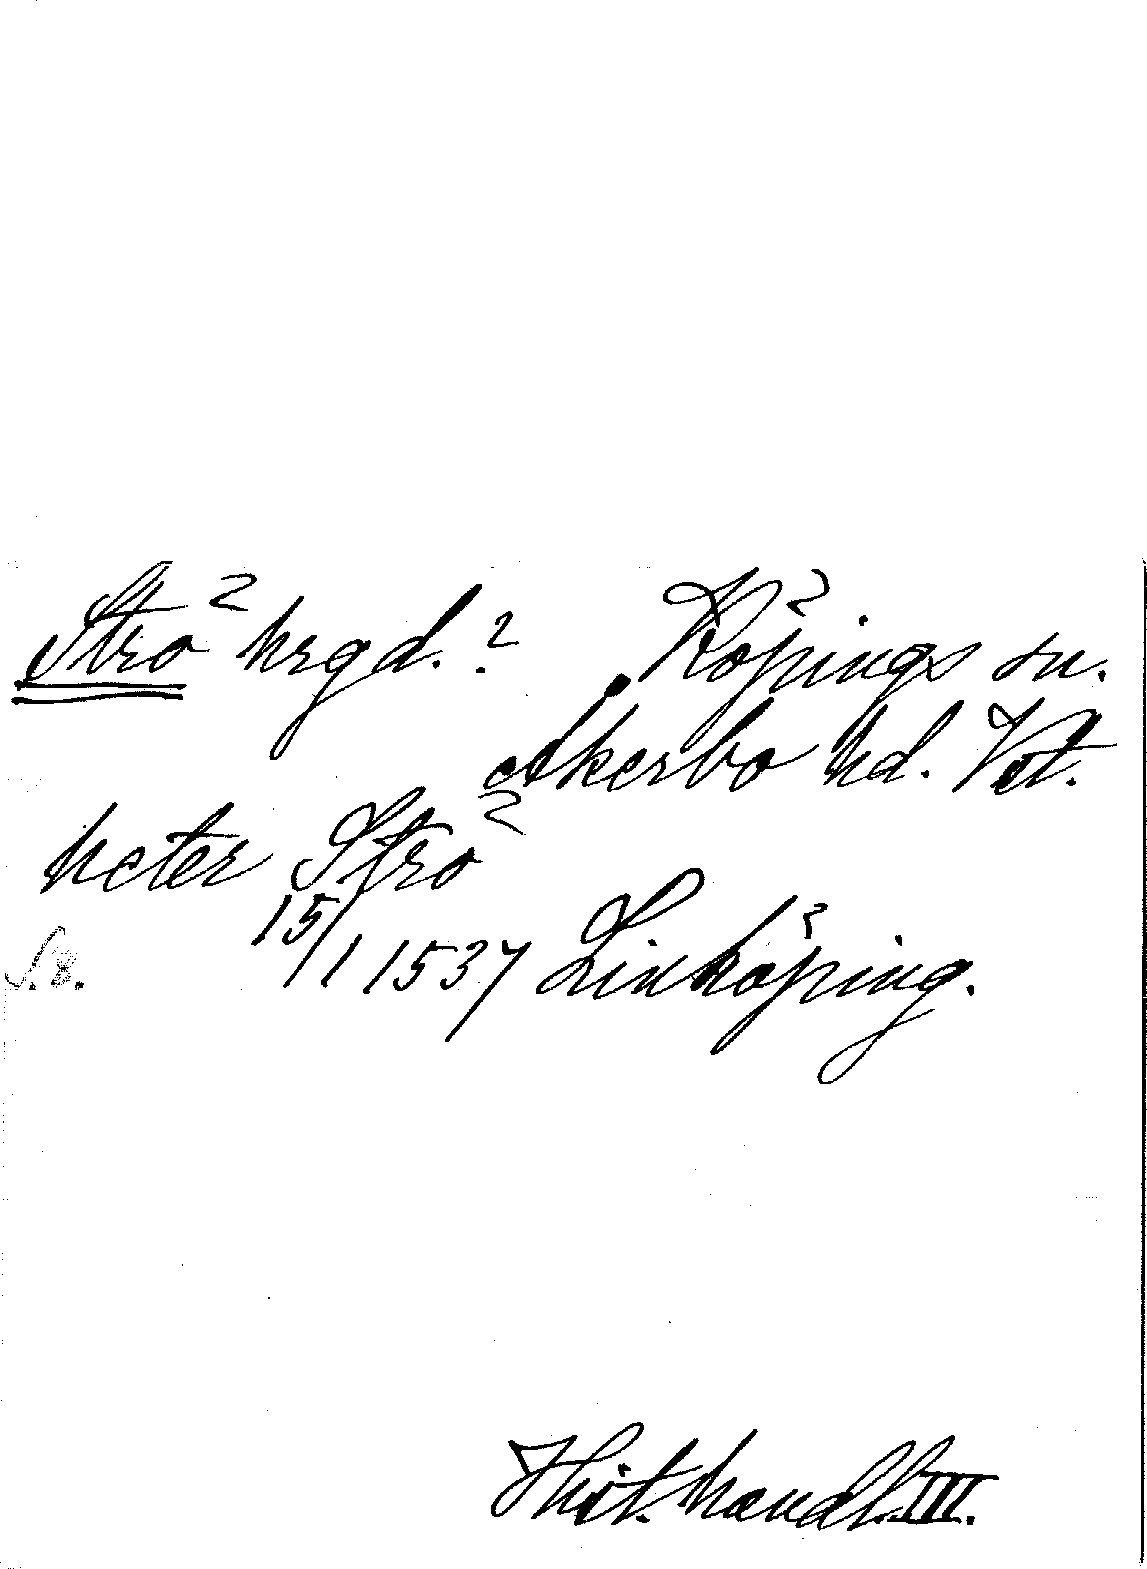 Strö hrgd.? Köpings sn.
Åkerbo hd. Vstl.
heter Strö
15/1 1537 Linköping.
S. 8.
Hist. handl. III.